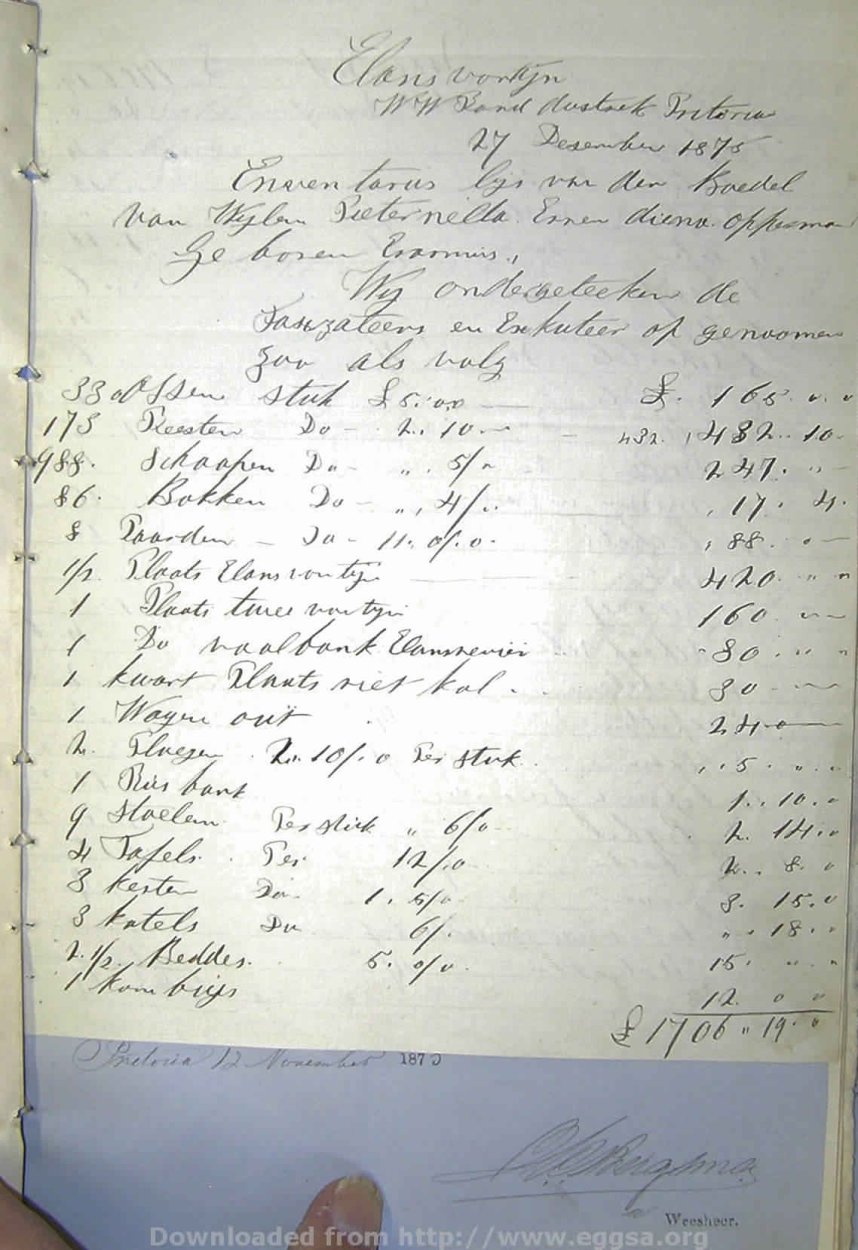 Elansvontyn
W W Rand dustrek Pritoria
27 Desember 1875
Enaventarus lys van den Boedel
van Wylen Pieternella opperman
Ge boren Erasmus,
Wy ondergeteeken de
en Exkuteer op genoomen
zoo als volg
33 Ossen stuk £ 5.0.0 £. 165. 0. 0
173 Beesten Do - 2. 10. - 432. 432. 10-
988. Schaapen Do - " . 5/- 247. " -
86. Bokken Do - " , 4/- , 17. 4.
8 Paarden - Do - 11. 0/. 0. , 88. . -
1/2. Plaats Elansvontyn 420. " "
1 Plaats twee vontyn 160. - -
1 Do vaalbank Elansrevier 80. " "
1 kwart Plaats riet kol . . 30 - -
1 Wagen out 24-0-
2. Ploegen 2. 10/. 0 Per stuk , . 5. " .
1 Rus bank 1. . 10. .
9 Stoelen Per stuk " 6/0 2. 14. .
4 Tafels. Per 12/.0 2. . 8. 0
3 kesten Do 1. 5/0 3. 15. 0
3 katels Do 6/. " . 18. .
2. 1/2 Beddes. 5. 0/0. 15. " "
1 kombuys 12. 0 0
£ 1706 " 19. 0
Pretoria 12 November 187
Bergsma
Weesheer.
Downloaded from http://www.eggsa.org